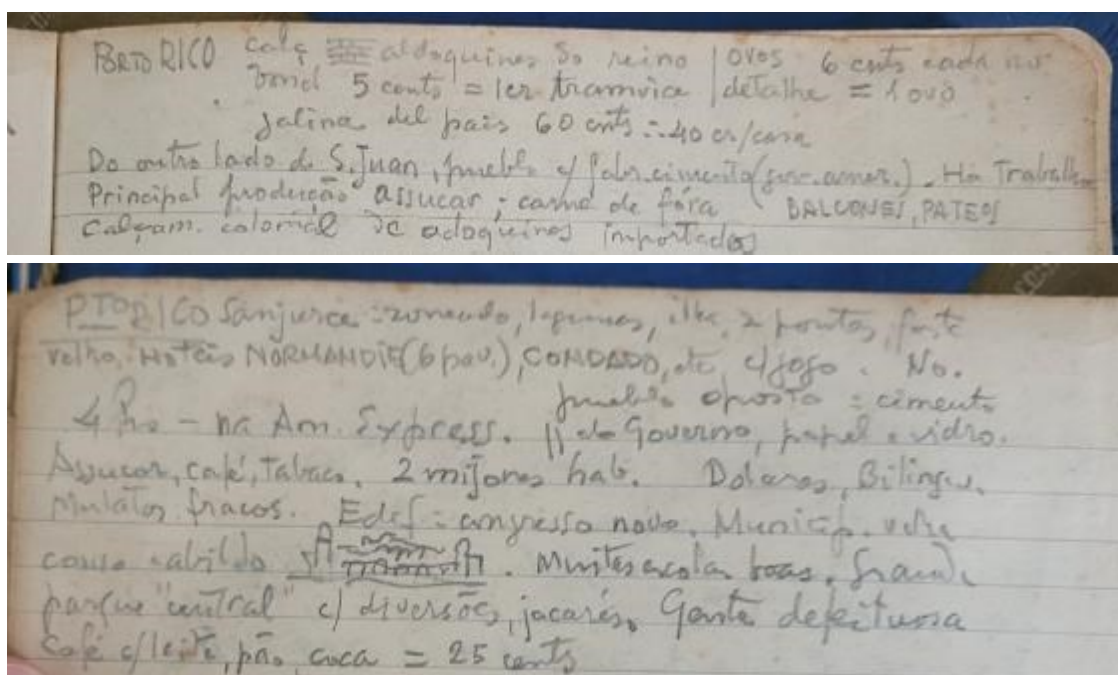 PORTO RICO calç adoquines do reino | ovos 6 cents cada no
bond 5 cents = ler tramvia | detalhe = 1 ovo
galina del pais 60 cents = 40 cr/cara
Do outro lado de S. Juan, pueblo c/ fabr. cimento (suc. amer.). Há Trabalho
Principal produção assucar; carne de fóra BALCONES, PATEOS
Calçam. colonial de adoquines importados
PTO RICO Sanjurce: zoneado, lagunas, ilha, 2 pontes, forte
velho, Hoteis NORMANDIE (6 pav.), CONDADO, etc c/jogo. No.
pueblo oposto = cimento
4 hs - na Am. Express. || do Governo, papel e vidro.
Assucar, café, tabaco. 2 milões hab. Dolares, Bilingue.
mulatos fracos. Edif: congresso novo. Municip. velho
como cabildo. Muitas escolas boas. Grande
parque "central" c/ diversões, jacarés. Gente defeituosa
Café c/leite, pão, coca = 25 cents